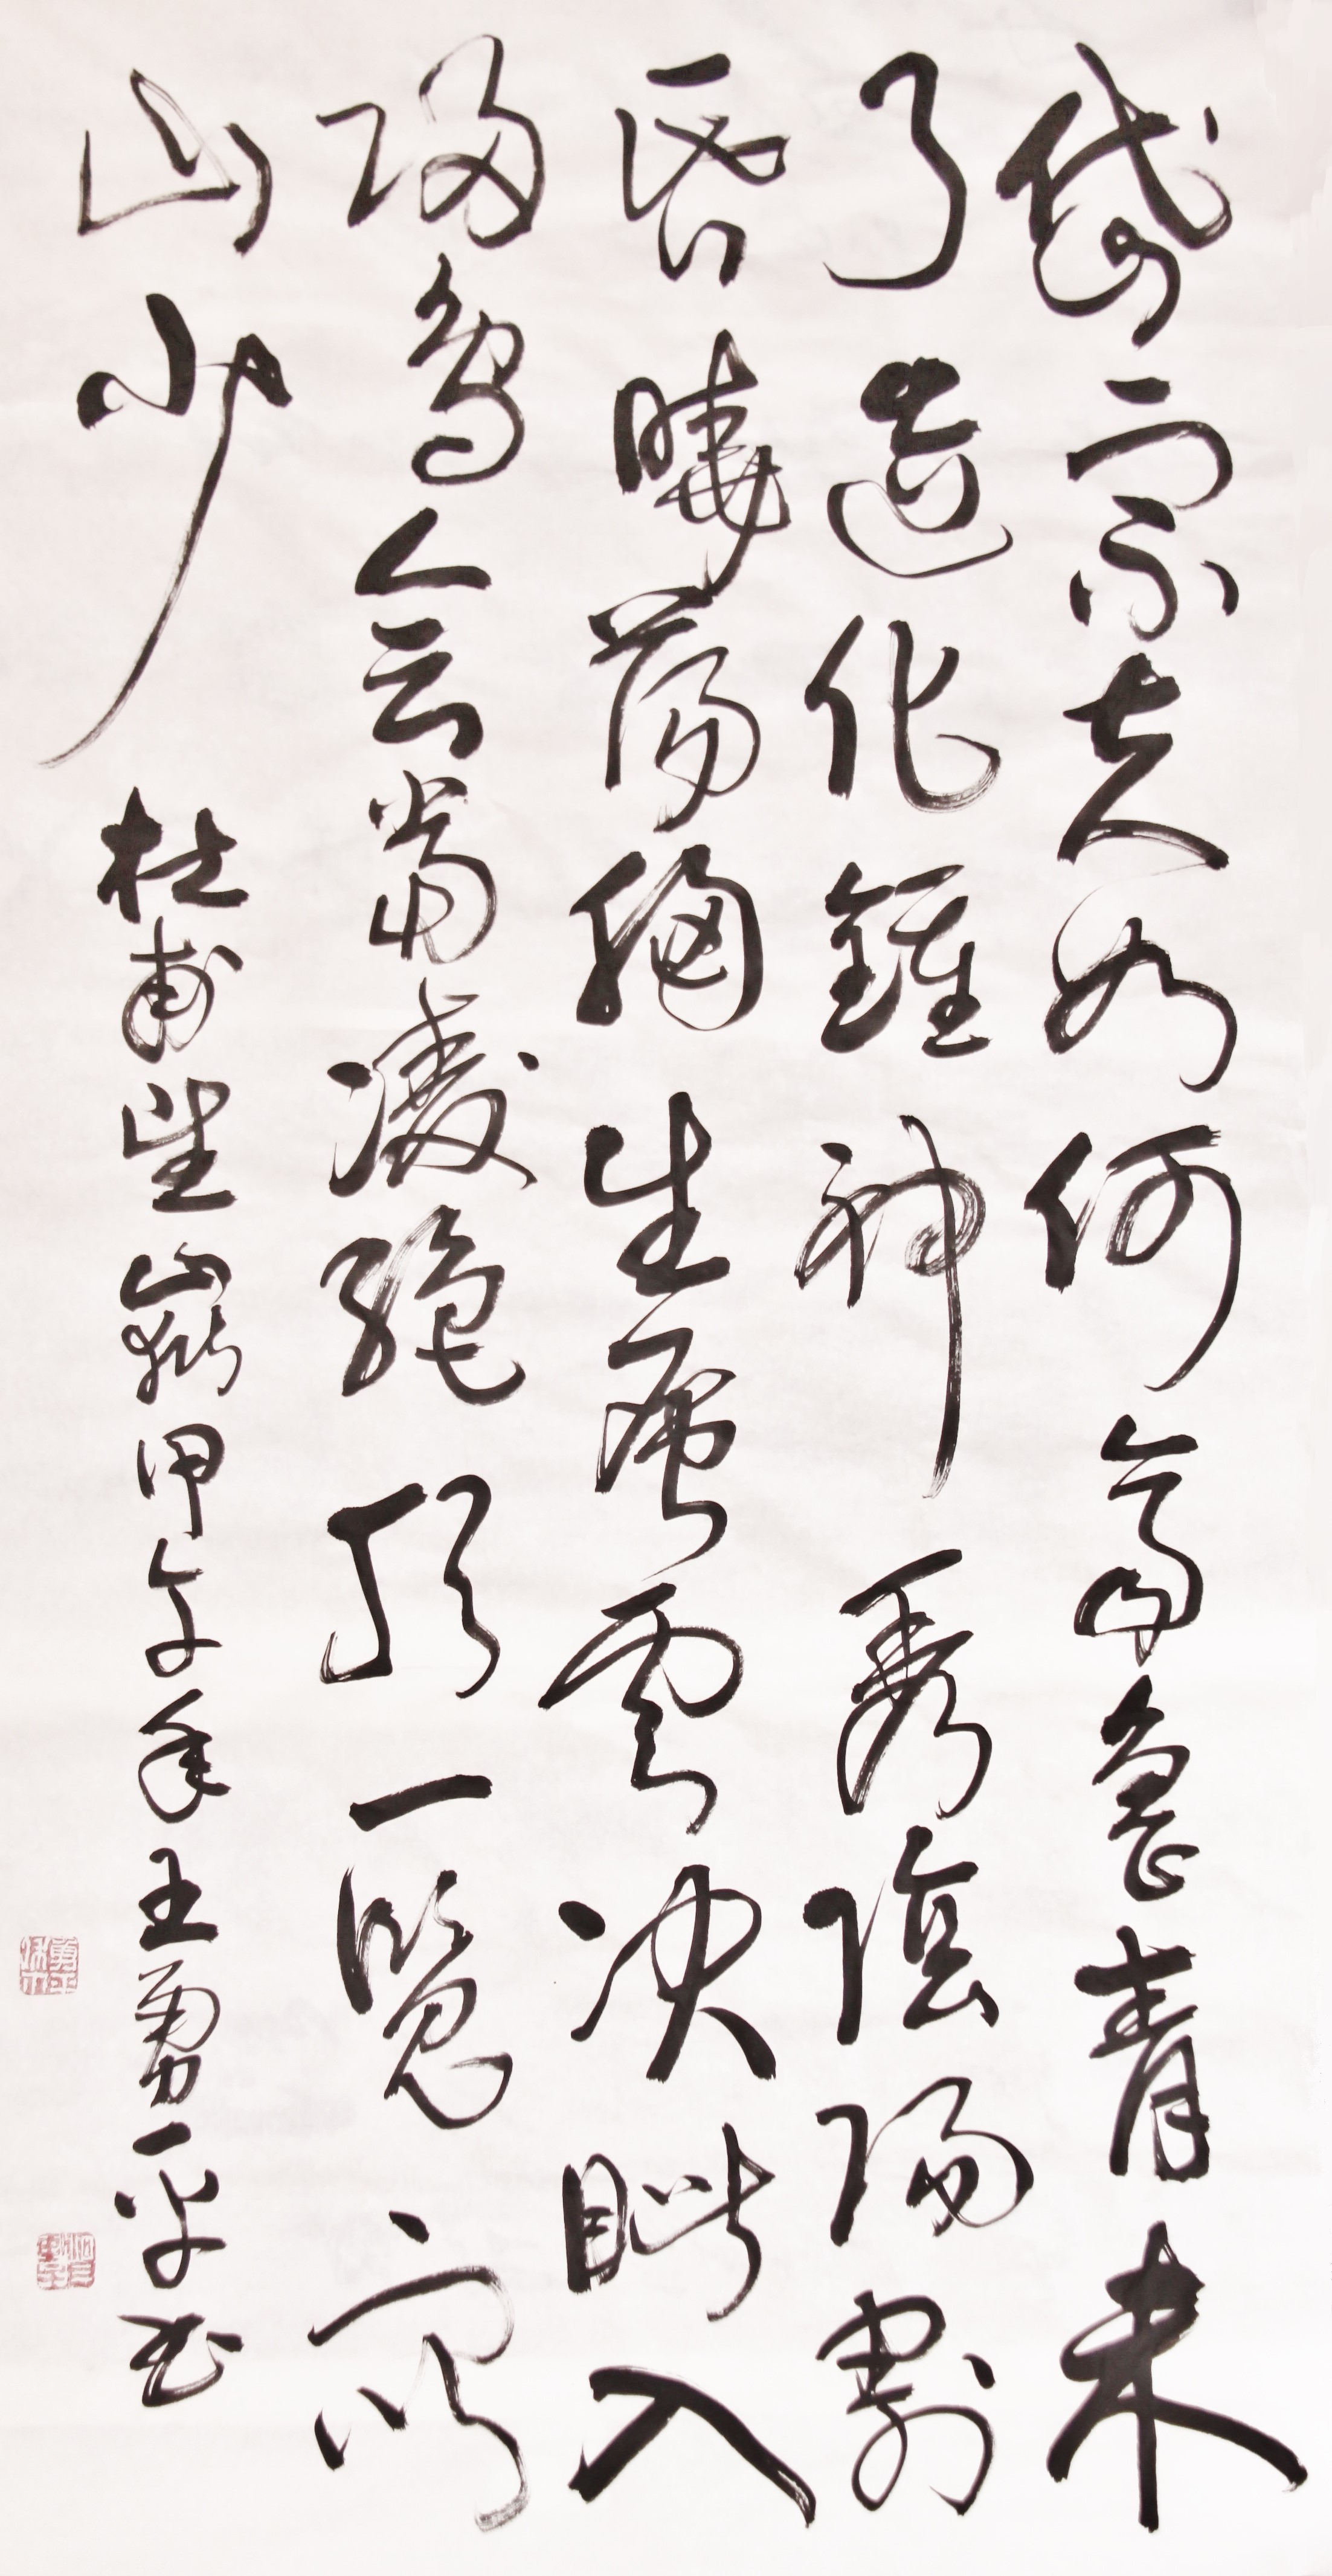 岱宗夫如何齊魯青未
了造化鍾神秀陰陽割
昏曉蕩胸生層雲决眦入
歸鳥会當凌絕頂一覽眾
山少 杜甫望嶽甲午年王勇平书